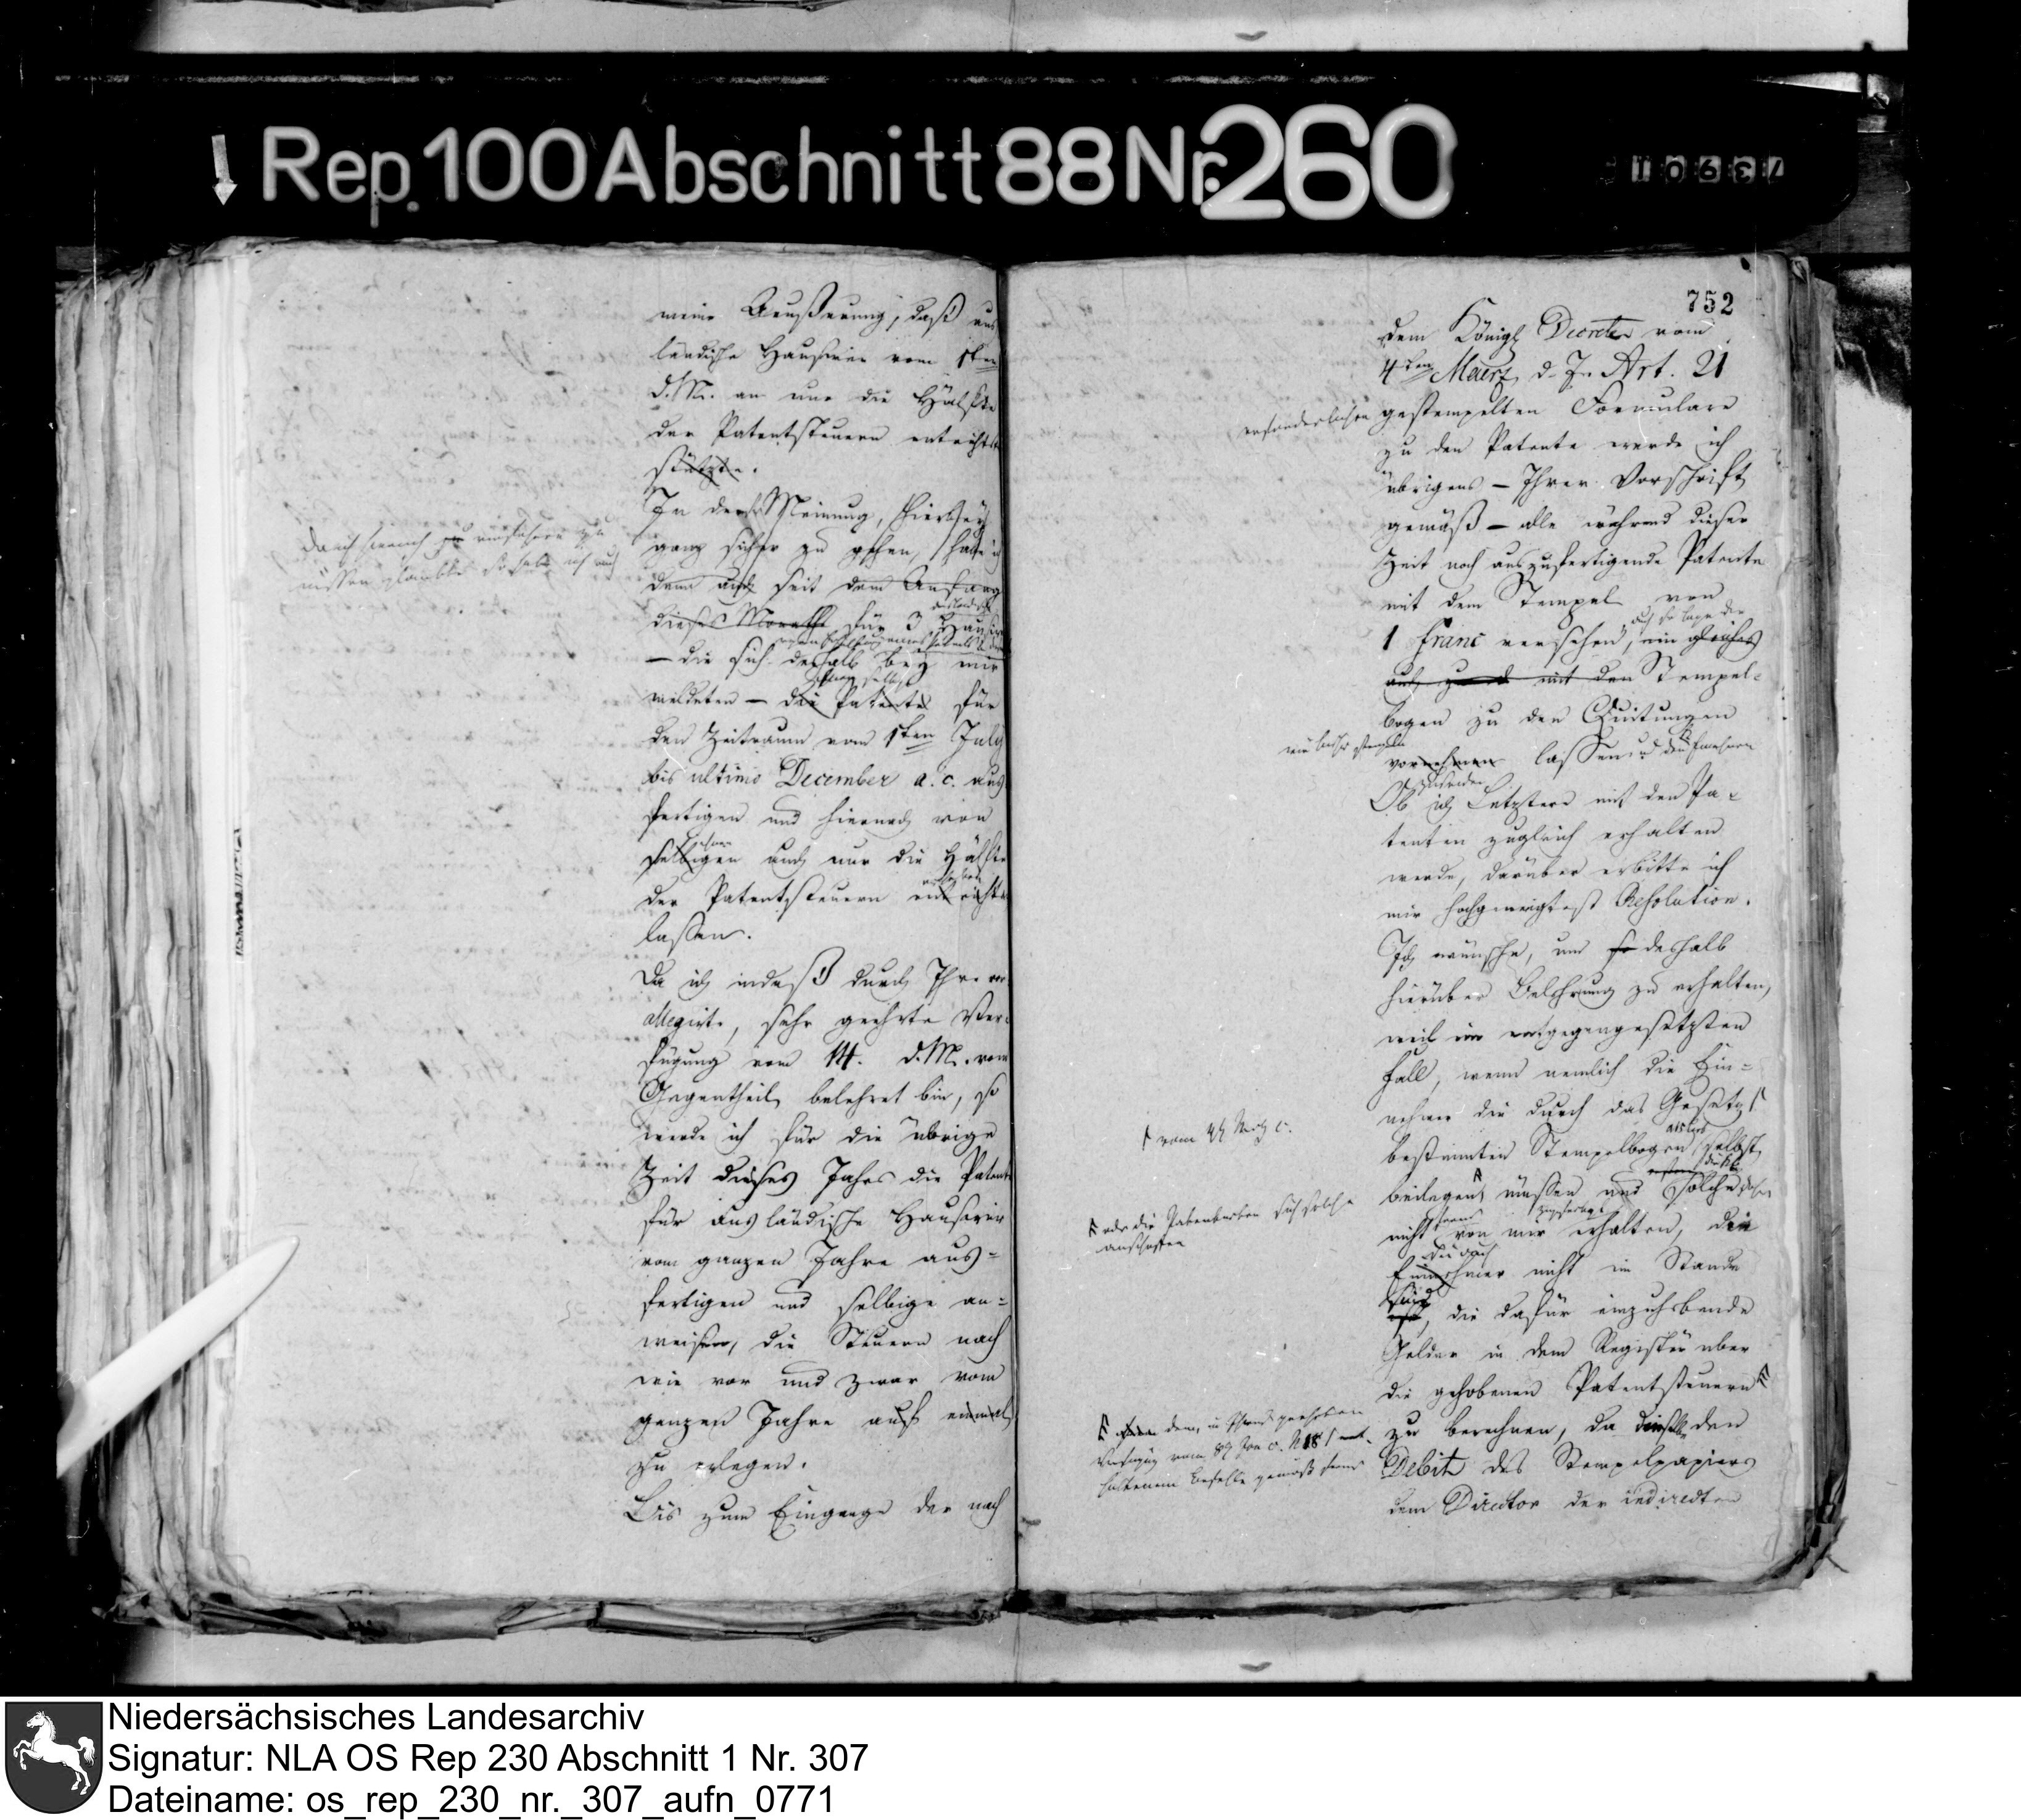 Rep. 100 Abschnitt 88 Nr. 260
meine Aeußerung, daß aus
ländische Hausirer vom 1ten
d. M. an nur die Hälfte
der Patentsteuern entrichte
In der Meinung, hierbey
ganz sicher zu gehen, habe ich
denn auch seit dem Anfang
dieses Monaths für 3 Hausirer
— die sich deshalb bey mir
meldeten — die Patente für
den Zeitraum vom 1ten July
bis ultimo December a. c. aus
fertigen und hiernach von
selbigen auch nur die Hälfte
der Patentsteuern entrichten
lassen.
Da ich indeß durch Ihre vor
allegirte, sehr geehrte Ver-
fügung vom 14. d. M. vom
Gegentheil belehret bin, so
werde ich für die übrige
Zeit dieses Jahrs die Patente
für ausländische Hausirer
vom ganzen Jahre aus-
fertigen und selbige an-
weisen, die Steuern nach
wie vor und zwar vom
ganzen Jahre auf einmal
zu erlegen.
Bis zum Eingange der nach
752
dem Königl Decrete vom
4ten Maerz d. J. Art. 21
erforderlichen
gestempelten Formulare
zu den Patente werde ich
übrigens — Ihrer Vorschrift
gemäß — alle während dieser
Zeit noch auszufertigende Patente
mit dem Stempel von
1 franc versehen, ein gleiches
auch mit den Stempel-
bogen zu den Quitungen
vornehmen lassen
Ob ich Letztere mit den Pa-
tenten zugleich erhalten
werde, darüber erbitte ich
mir hochgeneigtest Resolution.
Ich wünsche, um so deshalb
hierüber Belehrung zu erhalten,
weil im entgegengesetzten
Fall, wenn nemlich die Ein-
nehmer die durch das Gesetz
vom 4t Merz c.
bestimmten Stempelbogen selbst
beilegen müssen und solche
oder die Patentirten sich solche
anschaffen
nicht von mir erhalten, die
Einnehmer nicht im Stande
sind, die dafür einzuhebende
Gelder in dem Register über
die gehobenen Patentsteuern
zu berechnen, da dieselbe den
Debit des Stempelpapiers
dem Director der indirecten
Niedersächsisches Landesarchiv
Signatur: NLA OS Rep 230 Abschnitt 1 Nr. 307
Dateiname: os_rep_230_nr._307_aufn_0771